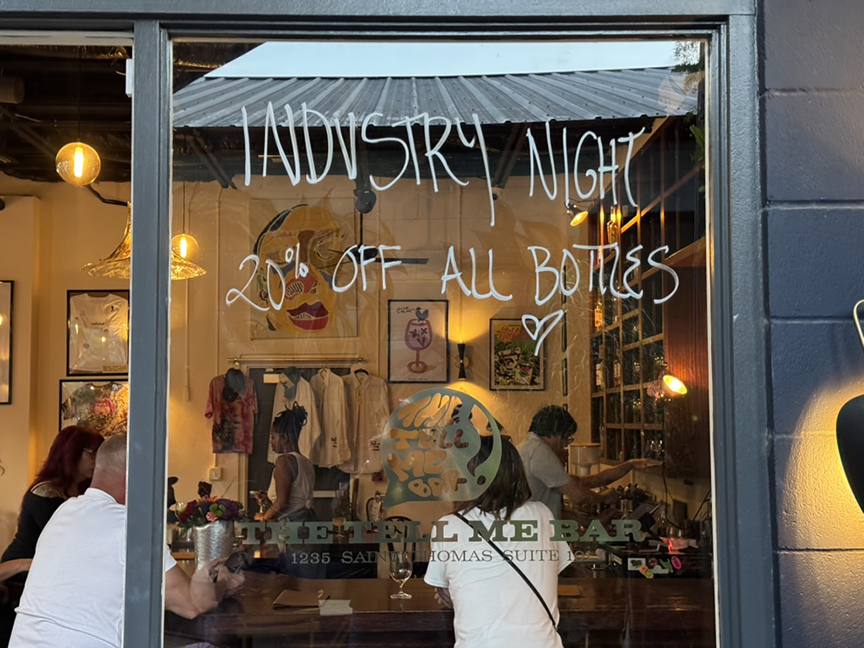 INDUSTRY NIGHT
20% OFF ALL BOTTLES
THE
TELL
ME
BAR
THE TELL ME BAR
1235 SAINT THOMAS SUITE